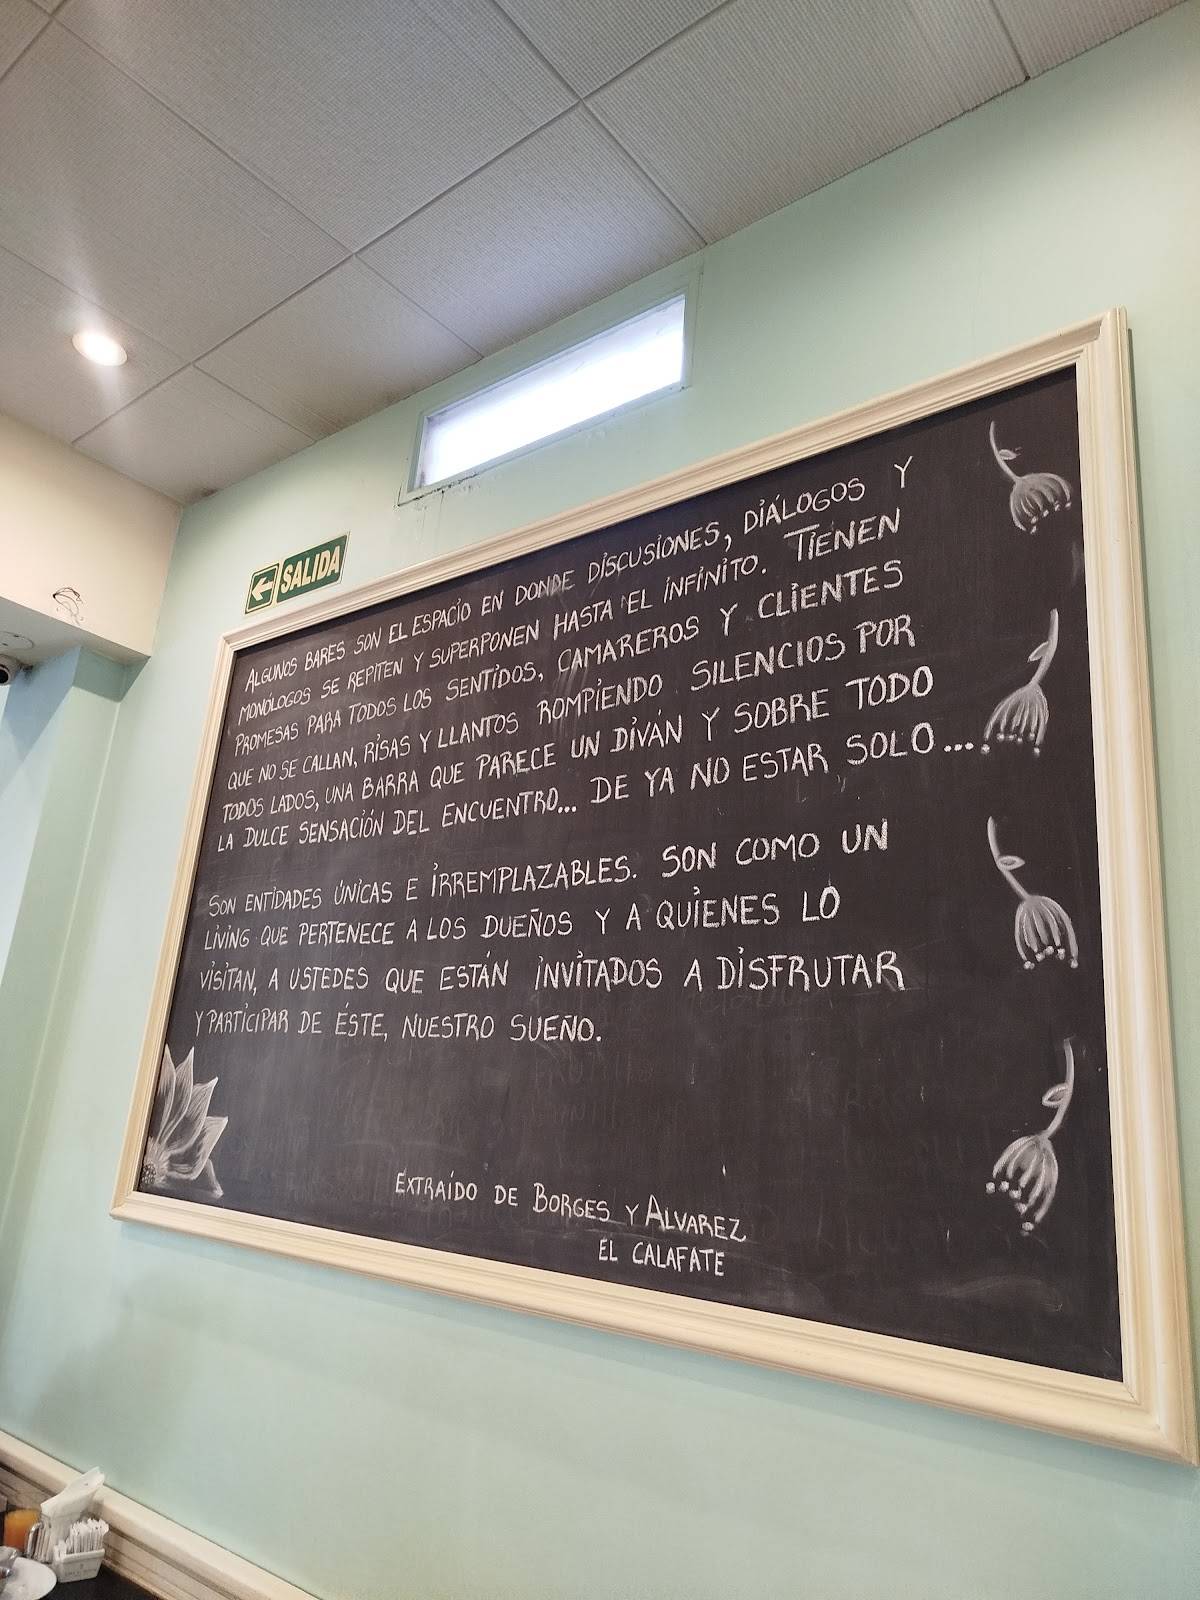 SALIDA
ALGUNOS BARES SON EL ESPACIO EN DONDE DISCUSIONES, DIÁLOGOS Y
MONÓLOGOS SE REPITEN Y SUPERPONEN HASTA EL INFINITO. TIENEN
PROMESAS PARA TODOS LOS SENTIDOS, CAMAREROS Y CLIENTES
QUE NO SE CALLAN, RISAS Y LLANTOS ROMPIENDO SILENCIOS POR
TODOS LADOS, UNA BARRA QUE PARECE UN DIVÁN Y SOBRE TODO
LA DULCE SENSACIÓN DEL ENCUENTRO... DE YA NO ESTAR SOLO....
SON ENTIDADES ÚNICAS E IRREMPLAZABLES. SON COMO UN
LIVING QUE PERTENECE A LOS DUEÑOS Y A QUIENES LO
VISITAN, A USTEDES QUE ESTÁN INVITADOS A DISFRUTAR
Y PARTICIPAR DE ÉSTE, NUESTRO SUEÑO.
EXTRAÍDO DE BORGES Y ALVAREZ
EL CALAFATE